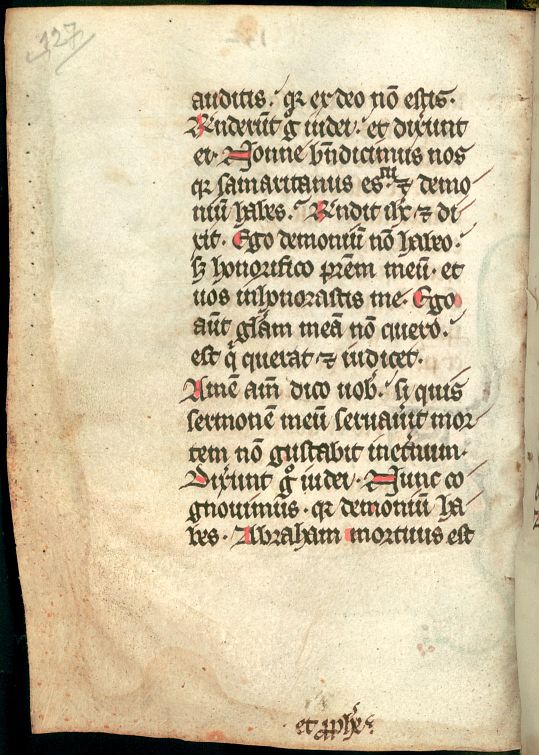 127
auditis. qr ex deo nō estis.
Rnderūt gͦ iudei. et dixūnt
ei. Nonne bn̄dicimus nos
qr samaritanus es tu ⁊ demo
niū habes. Rndit ihc ⁊ di
xit. Ego demoniū nō habeo.
sꝫ honorifico prēm meū. et
uos inhonorastis me. Ego
aūt glām meā nō quero.
est qͥ querat ⁊ iudicet.
Amē am̄ dico uob. si quis
sermonē meū seruaūit mor
tem nō gustabit inet̄num.
Dixūnt gͦ iudei. Nunc co
gnouimus. qr demoniū ha
bes. Abraham mortuus est
et ꝓphe.